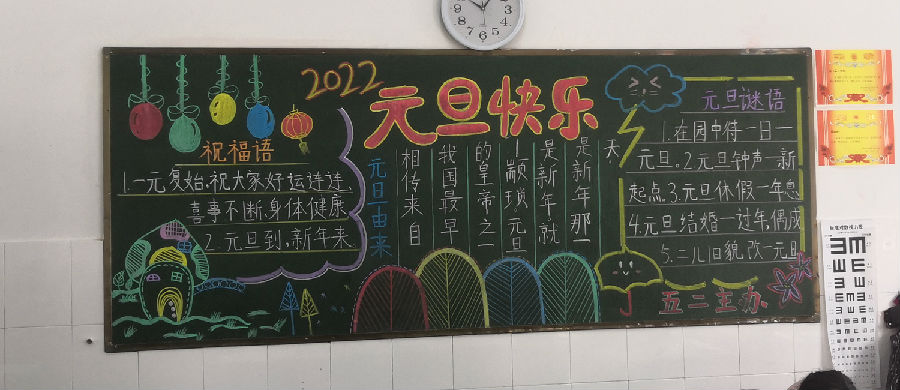 2022
元旦快乐
祝福语
1.一元复始,祝大家好运连连,
喜事不断,身体健康
2.元旦到,新年来
元旦由来
相传来自
我国最早
的皇帝之
一颛顼。元旦
是新年,就
是新年那一
天
元旦谜语
1.在园中待一日一
元旦。2元旦钟声一新
起点.3.元旦休假一年息
4.元旦结婚一过年,偶成
5.二儿旧貌改一元旦
五二主办